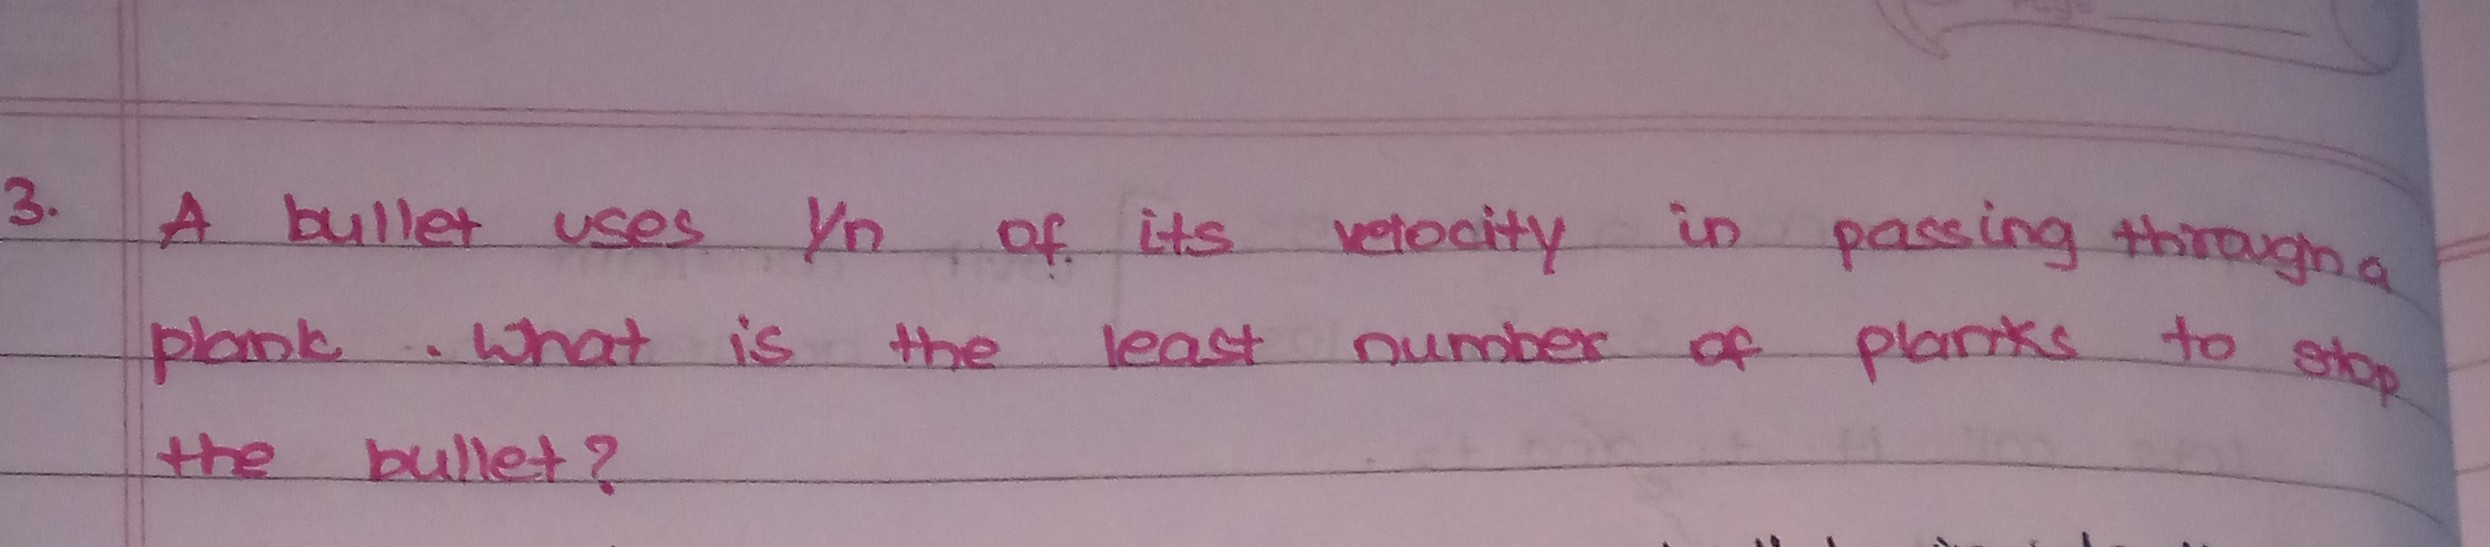 3. A bullet uses 1/n of its velocity in passing through a
plank. What is the least number of planks to stop
the bullet?